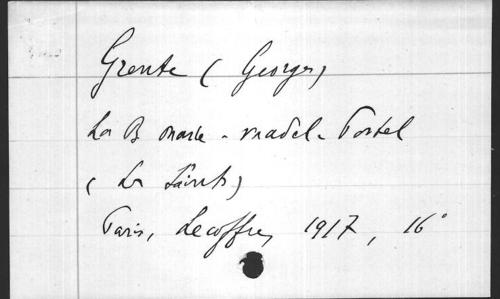 Grente (Georges)
La B Marie-Madel-Postel
(Les Saints)
Paris, Lecoffre, 1917, 16°